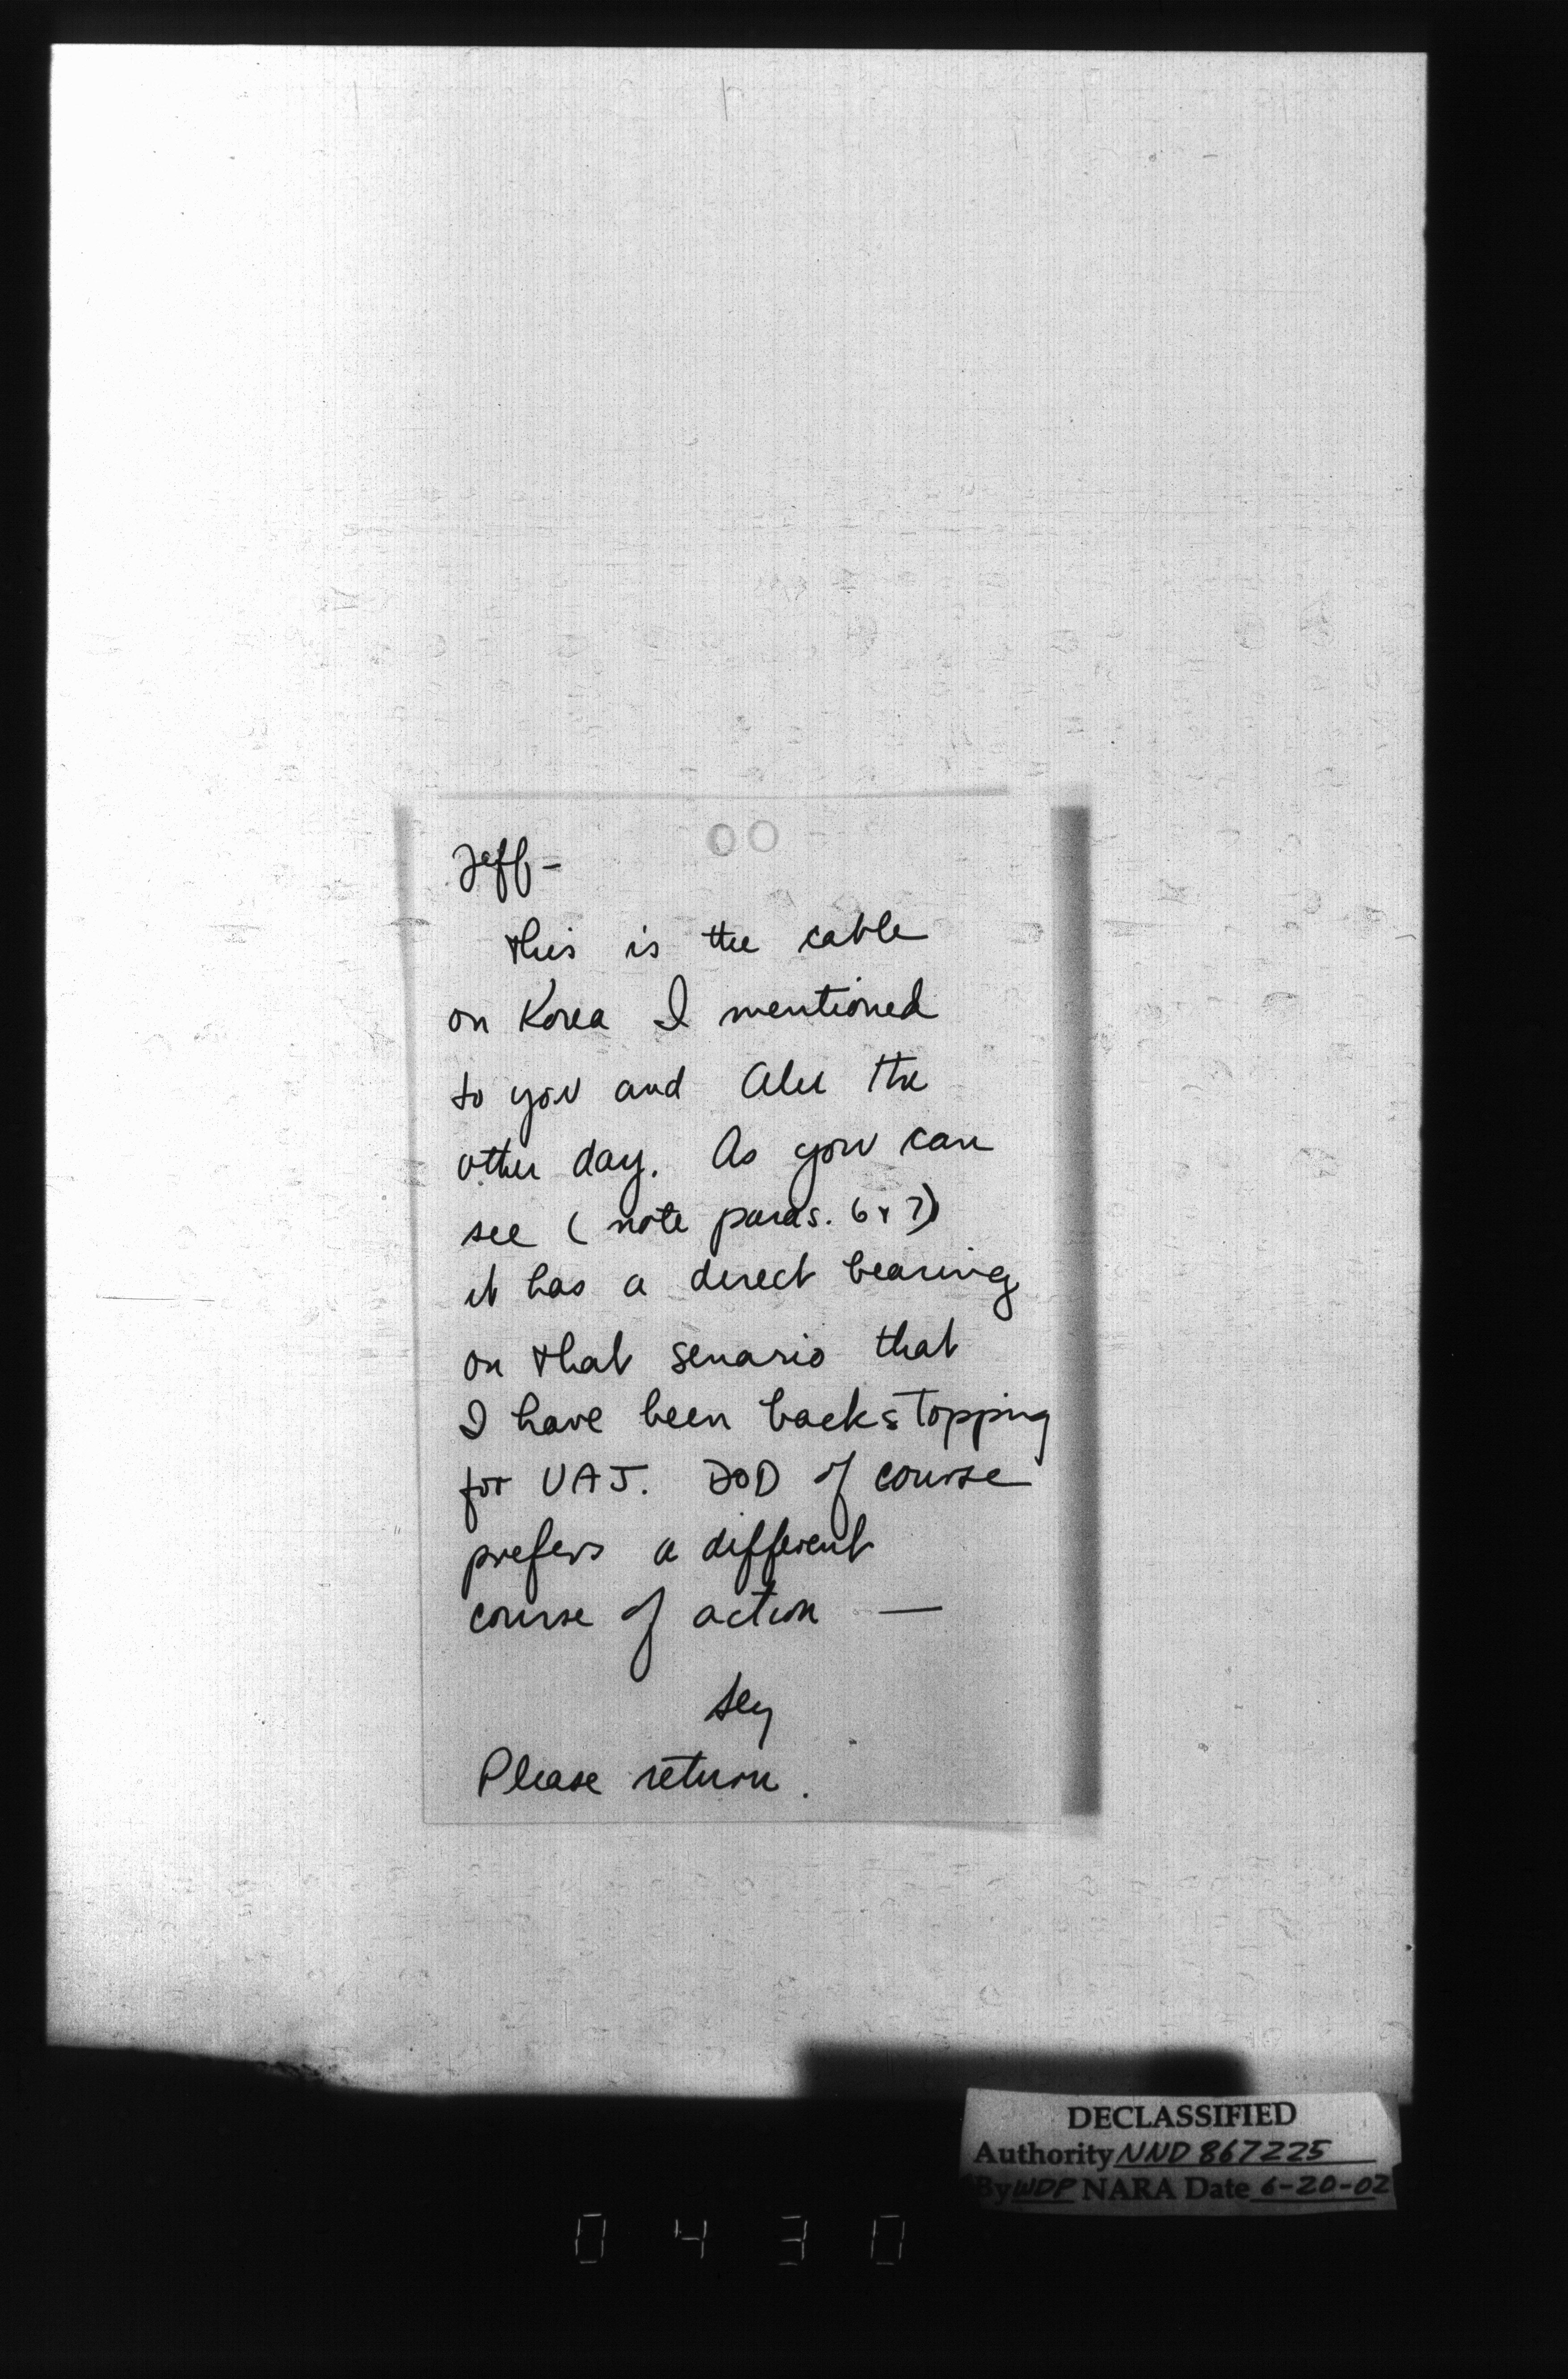 Jeff -
This is the cable
on Korea I mentioned
to you and Alex the
other day. As you can
see (note paras. 6 & 7)
it has a direct bearing
on that senario that
I have been backstopping
for UAJ. DOD of course
prefers a different
course of action —
Please return.
DECLASSIFIED
Authority NND 867225
By WDP NARA Date 6-20-02
0430